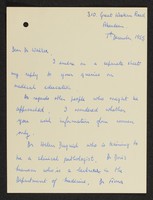 310, Great Western Road
Aberdeen
7th December 1968
Dear Dr Walker
I enclose on a separate sheet
my reply to your queries on
medical education.
As regards other people who might be
approached, I wondered whether
you want information from women
only.
Dr Helen
is a clinical pathologist. Dr
who is a lecturer in the
Department of Medicine. Dr